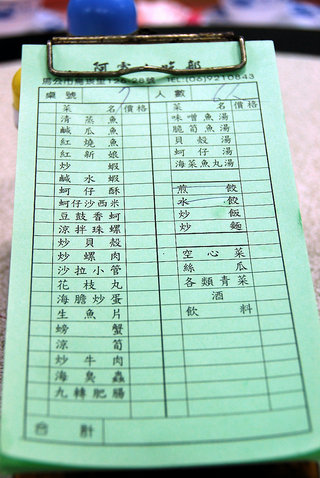 小吃部
馬公市 號 TEL (06)9210843
桌號 7 人數
菜名 價格 菜名 價格
清蒸魚 味噌魚湯
鹹瓜魚 脆筍魚湯
紅燒魚 貝殼湯
紅新娘 蚵仔湯
炒蝦 海菜魚丸湯
鹹水蝦
蚵仔酥 煎餃
蚵仔沙西米 水餃
豆鼓香蚵 炒飯
涼拌珠螺 炒麵
炒貝殼
炒螺肉 空心菜
沙拉小管 絲瓜
花枝丸 各類青菜
海膽炒蛋 酒
生魚片 飲料
螃蟹
涼筍
炒牛肉
海臭蟲
九轉肥腸
合計